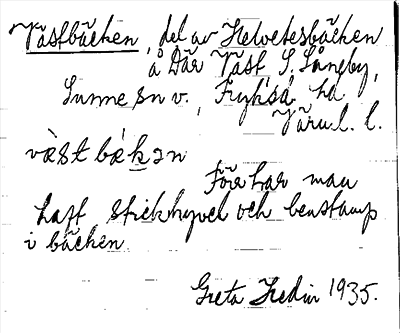 Västbäcken, del av Helvetesbäcken
å Där Väst S. Långby,
Sunne sn v., Fryksd. hd
Värml. l.
væst bækən
Förr har man
haft stickhyvel och benstamp
i bäcken.
Greta Hedin 1935.